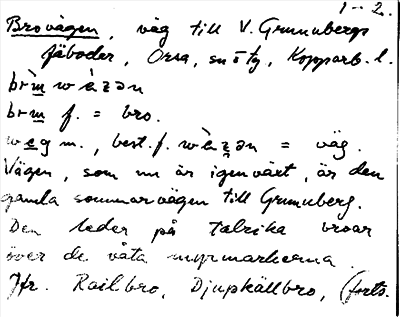 1-2.
Brovägen, väg till V. Grunubergs
fäboder, Orsa, sn o tg, Kopparb. l.
brm f. = bro.
weg m., best. f. = väg.
Vägen, som nu är igenvärt, är den
gamla sommarvägen till Grunuberg.
Den leder på talrika broar
över de våta myrmarkerna.
Jfr. Railbro, Djupkällbro, (forts.